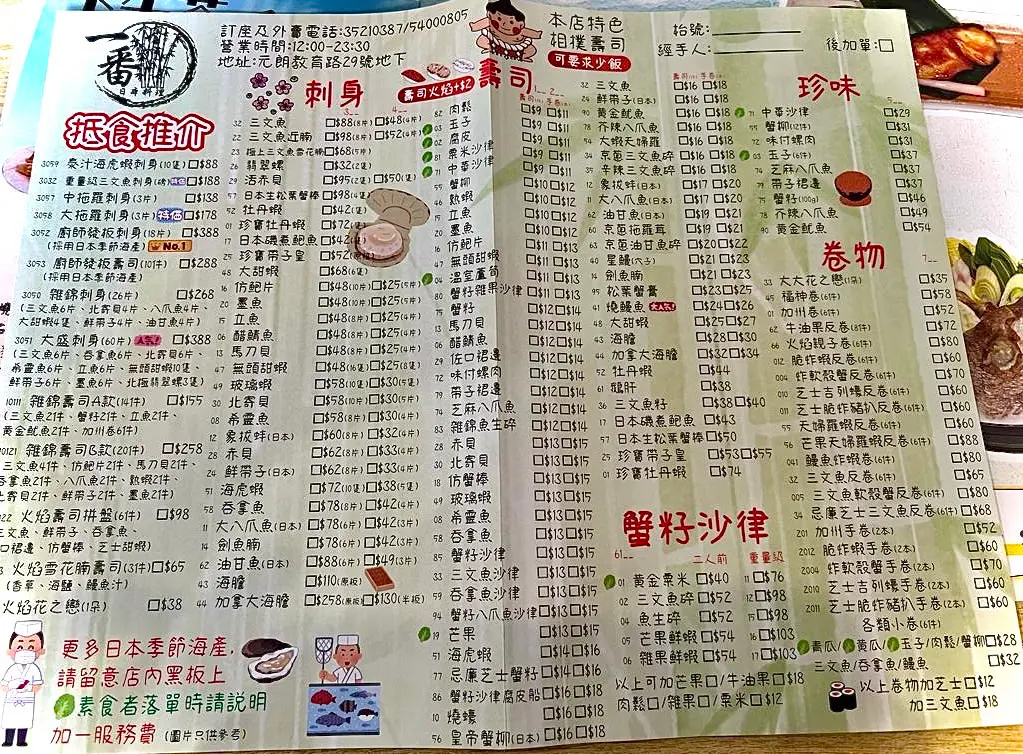 一番
日本料理
訂座及外賣電話:35210387/54000805
營業時間:12:00-23:30
地址:元朗教育路29號地下
本店特色
相撲壽司
可要求少飯
枱號:
經手人:
後加單:□
抵食推介
3059 泰汁海虎蝦刺身(10隻) □$88
3032 重量級三文魚刺身(磅) 特價 □$188
3057 中拖羅刺身(3片) □$138
3058 大拖羅刺身(3片) 特價 □$178
3052 廚師發板刺身(18片) □$388
(採用日本季節海產) No.1
3053 廚師發板壽司(10件) □$288
(採用日本季節海產)
3050 雜錦刺身(26片) □$268
(三文魚6片、北寄貝4片、八爪魚4片、
大甜蝦4隻、鮮帶子4片、油甘魚4片)
3051 大盛刺身(60片) 人氣! □$388
(三文魚6片、吞拿魚6片、北寄貝6片、
希靈魚6片、立魚6片、無頭甜蝦10隻、
鮮帶子6片、墨魚6片、北極翡翠螺3隻)
10111 雜錦壽司A款(14件) □$155
(三文魚2件、蟹籽2件、立魚2件、
黃金魷魚2件、加州卷6件)
雜錦壽司B款(20件) □$258
三文魚4件、仿鮑片2件、馬刀貝2件、
吞拿魚2件、八爪魚2件、熟蝦2件、
北寄貝2件、鮮帶子2件、墨魚2件)
火焰壽司拼盤(6件) □$98
三文魚、鮮帶子、吞拿魚、
口裙邊、仿蟹棒、芝士甜蝦)
火焰雪花腩壽司(3件) □$65
(香草、海鹽、鰻魚汁)
火焰花之戀(1朵) □$38
更多日本季節海產,
請留意店內黑板上
素食者落單時請說明
加一服務費 (圖片只供參考)
刺身
3__ 4__
32 三文魚 □$88(8片) □$48(4片)
22 三文魚近腩 □$98(8片) □$52(4片)
23 極上三文魚雪花腩 □$68(5片)
26 翡翠螺 □$32(2隻)
29 活赤貝 □$95(2隻) □$50(1隻)
57 日本生松葉蟹棒 □$98(1隻)
52 牡丹蝦 □$42(1隻)
01 珍寶牡丹蝦 □$72(1隻)
17 日本磯煮鮑魚 □$42(1隻)
25 珍寶帶子皇 □$52(原個)
48 大甜蝦 □$68(6隻)
16 仿鮑片 □$48(10片) □$25(5片)
20 墨魚 □$48(10片) □$25(5片)
15 立魚 □$48(8片) □$25(4片)
06 醋鯖魚 □$48(8片) □$25(4片)
13 馬刀貝 □$48(8片) □$25(4片)
47 無頭甜蝦 □$48(16隻) □$25(8隻)
49 玻璃蝦 □$58(10隻) □$30(5隻)
30 北寄貝 □$58(10片) □$30(5片)
08 希靈魚 □$58(8片) □$30(4片)
12 象拔蚌(日本) □$60(8片) □$32(4片)
28 赤貝 □$62(8片) □$33(4片)
24 鮮帶子(日本) □$62(8片) □$33(4片)
51 海虎蝦 □$72(10隻) □$38(5隻)
58 吞拿魚 □$78(8片) □$42(4片)
11 大八爪魚(日本) □$78(6片) □$42(3片)
14 劍魚腩 □$78(6片) □$42(3片)
62 油甘魚(日本) □$88(6片) □$49(3片)
43 海膽 □$110(原板)
44 加拿大海膽 □$258(原板) □$130(半板)
壽司火焰+$2
壽司
1__ 2__
壽司(1件) 手卷(1件)
82 肉鬆 □$9 □$11
03 玉子 □$9 □$11
02 腐皮 □$9 □$11
81 粟米沙律 □$9 □$11
71 中華沙律 □$9 □$11
55 蟹柳 □$10 □$12
46 熟蝦 □$10 □$12
15 立魚 □$10 □$12
20 墨魚 □$10 □$12
16 仿鮑片 □$11 □$13
47 無頭甜蝦 □$11 □$13
04 溫室蘆筍 □$11 □$13
80 蟹籽雜果沙律 □$11 □$13
75 蟹籽 □$12 □$14
13 馬刀貝 □$12 □$14
06 醋鯖魚 □$12 □$14
29 佐口裙邊 □$12 □$14
72 味付螺肉 □$12 □$14
79 帶子裙邊 □$12 □$14
74 芝麻八爪魚 □$12 □$14
83 雜錦魚生碎 □$12 □$14
28 赤貝 □$13 □$15
30 北寄貝 □$13 □$15
18 仿蟹棒 □$13 □$15
49 玻璃蝦 □$13 □$15
08 希靈魚 □$13 □$15
58 吞拿魚 □$13 □$15
85 蟹籽沙律 □$13 □$15
33 三文魚沙律 □$13 □$15
59 吞拿魚沙律 □$13 □$15
94 蟹籽八爪魚沙律 □$13 □$15
19 芒果 □$13 □$15
51 海虎蝦 □$14 □$16
77 忌廉芝士蟹籽 □$14 □$16
86 蟹籽沙律腐皮船 □$16 □$18
10 燒蠔 □$16 □$18
56 皇帝蟹柳(日本) □$16 □$18
壽司(1件) 手卷(1件)
32 三文魚 □$16 □$18
24 鮮帶子(日本) □$16 □$18
90 黃金魷魚 □$16 □$18
78 芥辣八爪魚 □$16 □$18
54 大蝦天婦羅 □$16 □$18
34 京蔥三文魚碎 □$16 □$18
35 辛辣三文魚碎 □$16 □$18
12 象拔蚌(日本) □$17 □$20
11 大八爪魚(日本) □$18 □$20
62 油甘魚(日本) □$19 □$21
60 京蔥拖羅茸 □$19 □$21
63 京蔥油甘魚碎 □$20 □$22
40 星鰻(穴子) □$21 □$23
14 劍魚腩 □$21 □$23
95 松葉蟹膏 □$23 □$25
41 燒鰻魚 大人氣! □$24 □$26
48 大甜蝦 □$25 □$27
43 海膽 □$28 □$30
44 加拿大海膽 □$32 □$34
52 牡丹蝦 □$44
61 鵝肝 □$38
36 三文魚籽 □$38 □$40
17 日本磯煮鮑魚 □$43
57 日本生松葉蟹棒 □$50
25 珍寶帶子皇 □$53 □$55
01 珍寶牡丹蝦 □$74
蟹籽沙律
61__ 二人前 重量級
01 黃金粟米 □$40 11 □$76
02 三文魚碎 □$52 12 □$98
04 魚生碎 □$52 15 □$98
05 芒果鮮蝦 □$54 16 □$103
06 雜果鮮蝦 □$54 17 □$103
以上可加芒果□/牛油果□ □$18
肉鬆□/雜果□/粟米□ □$12
珍味
5__
71 中華沙律 □$29
55 蟹柳(12件) □$31
72 味付螺肉 □$31
03 玉子(6件) □$37
74 芝麻八爪魚 □$37
79 帶子裙邊 □$37
75 蟹籽(100g) □$46
78 芥辣八爪魚 □$49
90 黃金魷魚 □$54
卷物
7__
33 大大花之戀(1朵) □$35
45 福神卷(6件) □$58
01 加州卷(6件) □$52
62 牛油果反卷(8件) □$72
66 火焰親子卷(6件) □$80
012 脆炸蝦反卷(6件) □$60
004 炸軟殼蟹反卷(6件) □$70
010 芝士吉列蠔反卷(6件) □$60
011 芝士脆炸豬扒反卷(6件) □$60
55 天婦羅蝦反卷(6件) □$60
56 芒果天婦羅蝦反卷(6件) □$88
041 鰻魚炸蝦卷(6件) □$80
32 三文魚反卷(6件) □$65
005 三文魚軟殼蟹反卷(6件) □$80
34 忌廉芝士三文魚反卷(6件) □$68
201 加州手卷(2本) □$52
2012 脆炸蝦手卷(2本) □$60
2004 炸軟殼蟹手卷(2本) □$70
2010 芝士吉列蠔手卷(2本) □$60
2011 芝士脆炸豬扒手卷(2本) □$60
各類小卷(6件)
青瓜/黃瓜/玉子/肉鬆/蟹柳 □$28
三文魚/吞拿魚/鰻魚 □$32
以上卷物加芝士□ □$12
加三文魚□ □$18